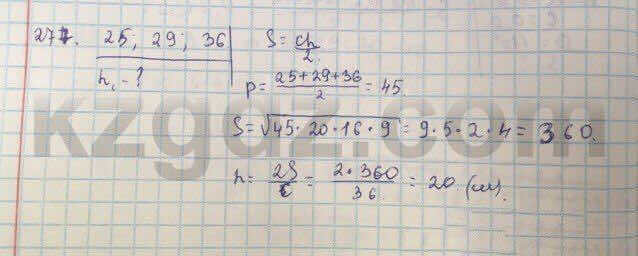 277. 25; 29; 36
h, - ?
S = ch/2
p = (25+29+36)/2 = 45.
S = √45·20·16·9 = 9·5·2·4 = 360.
h = 2S/c = 2·360/36 = 20 (см).
kzgdz.com